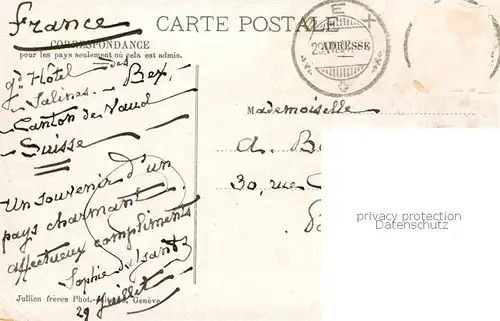 France
CARTE POSTALE
CORRESPONDANCE
pour les pays seulement où cela est admis.
ADRESSE
gd Hôtel des
Salines. Bex,
Canton de Vaud
Suisse
Un souvenir d'un
pays charmant
affectueux compliments
Sophie
29 Juillet
Mademoiselle
A.
30, rue
privacy protection
Datenschutz
Jullien frères Phot.-Éditeurs, Genève